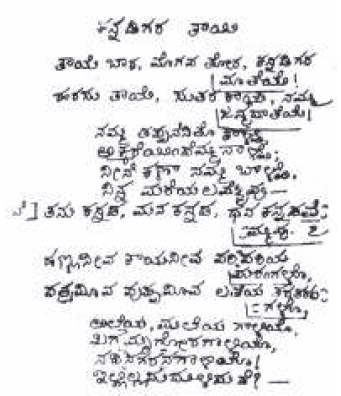 ಕನ್ನಡಿಗರ ತಾಯಿ
ತಾಯೆ ಬಾರ, ಮೊಗವ ತೋರ, ಕನ್ನಡಿಗರ
ಮಾತೆಯೆ!
ಹರಸು ತಾಯೆ, ಸುತರ ಕಾಯೆ, ನಮ್ಮ
ಜನ್ಮದಾತೆಯೆ!
ನಮ್ಮ ತಪ್ಪನೆನಿತೊ ತಾಳ್ವೆ,
ಅಕ್ಕರೆಯಿಂದೆಮ್ಮನಾಳ್ವೆ;
ನೀನೆ ಕಣಾ ನಮ್ಮ ಬಾಳ್ವೆ,
ನಿನ್ನ ಮರೆಯಲಮ್ಮೆವು —
ತನು ಕನ್ನಡ, ಮನ ಕನ್ನಡ, ಧನ ಕನ್ನಡವೆ:
ಮ್ಮವು.
ಹಣ್ಣನೀವ ಕಾಯನೀವ ಪರಿಪರಿಯ
ಮರಂಗಳೊ,
ಪತ್ರಮೀವ ಪುಷ್ಪಮೀವ ಲತೆಯ ತರತರಂ:
:ಗಳೊ,
ಮಲೆಯ ಗಾಳಿಯೊ,
ಖಗಮೃಗೋರಗಾಳಿಯೊ,
ನದಿನಗರನಗಾಳಿಯೊ!
ಇಲ್ಲಿಲ್ಲದುದುಳಿದುದೆ? —